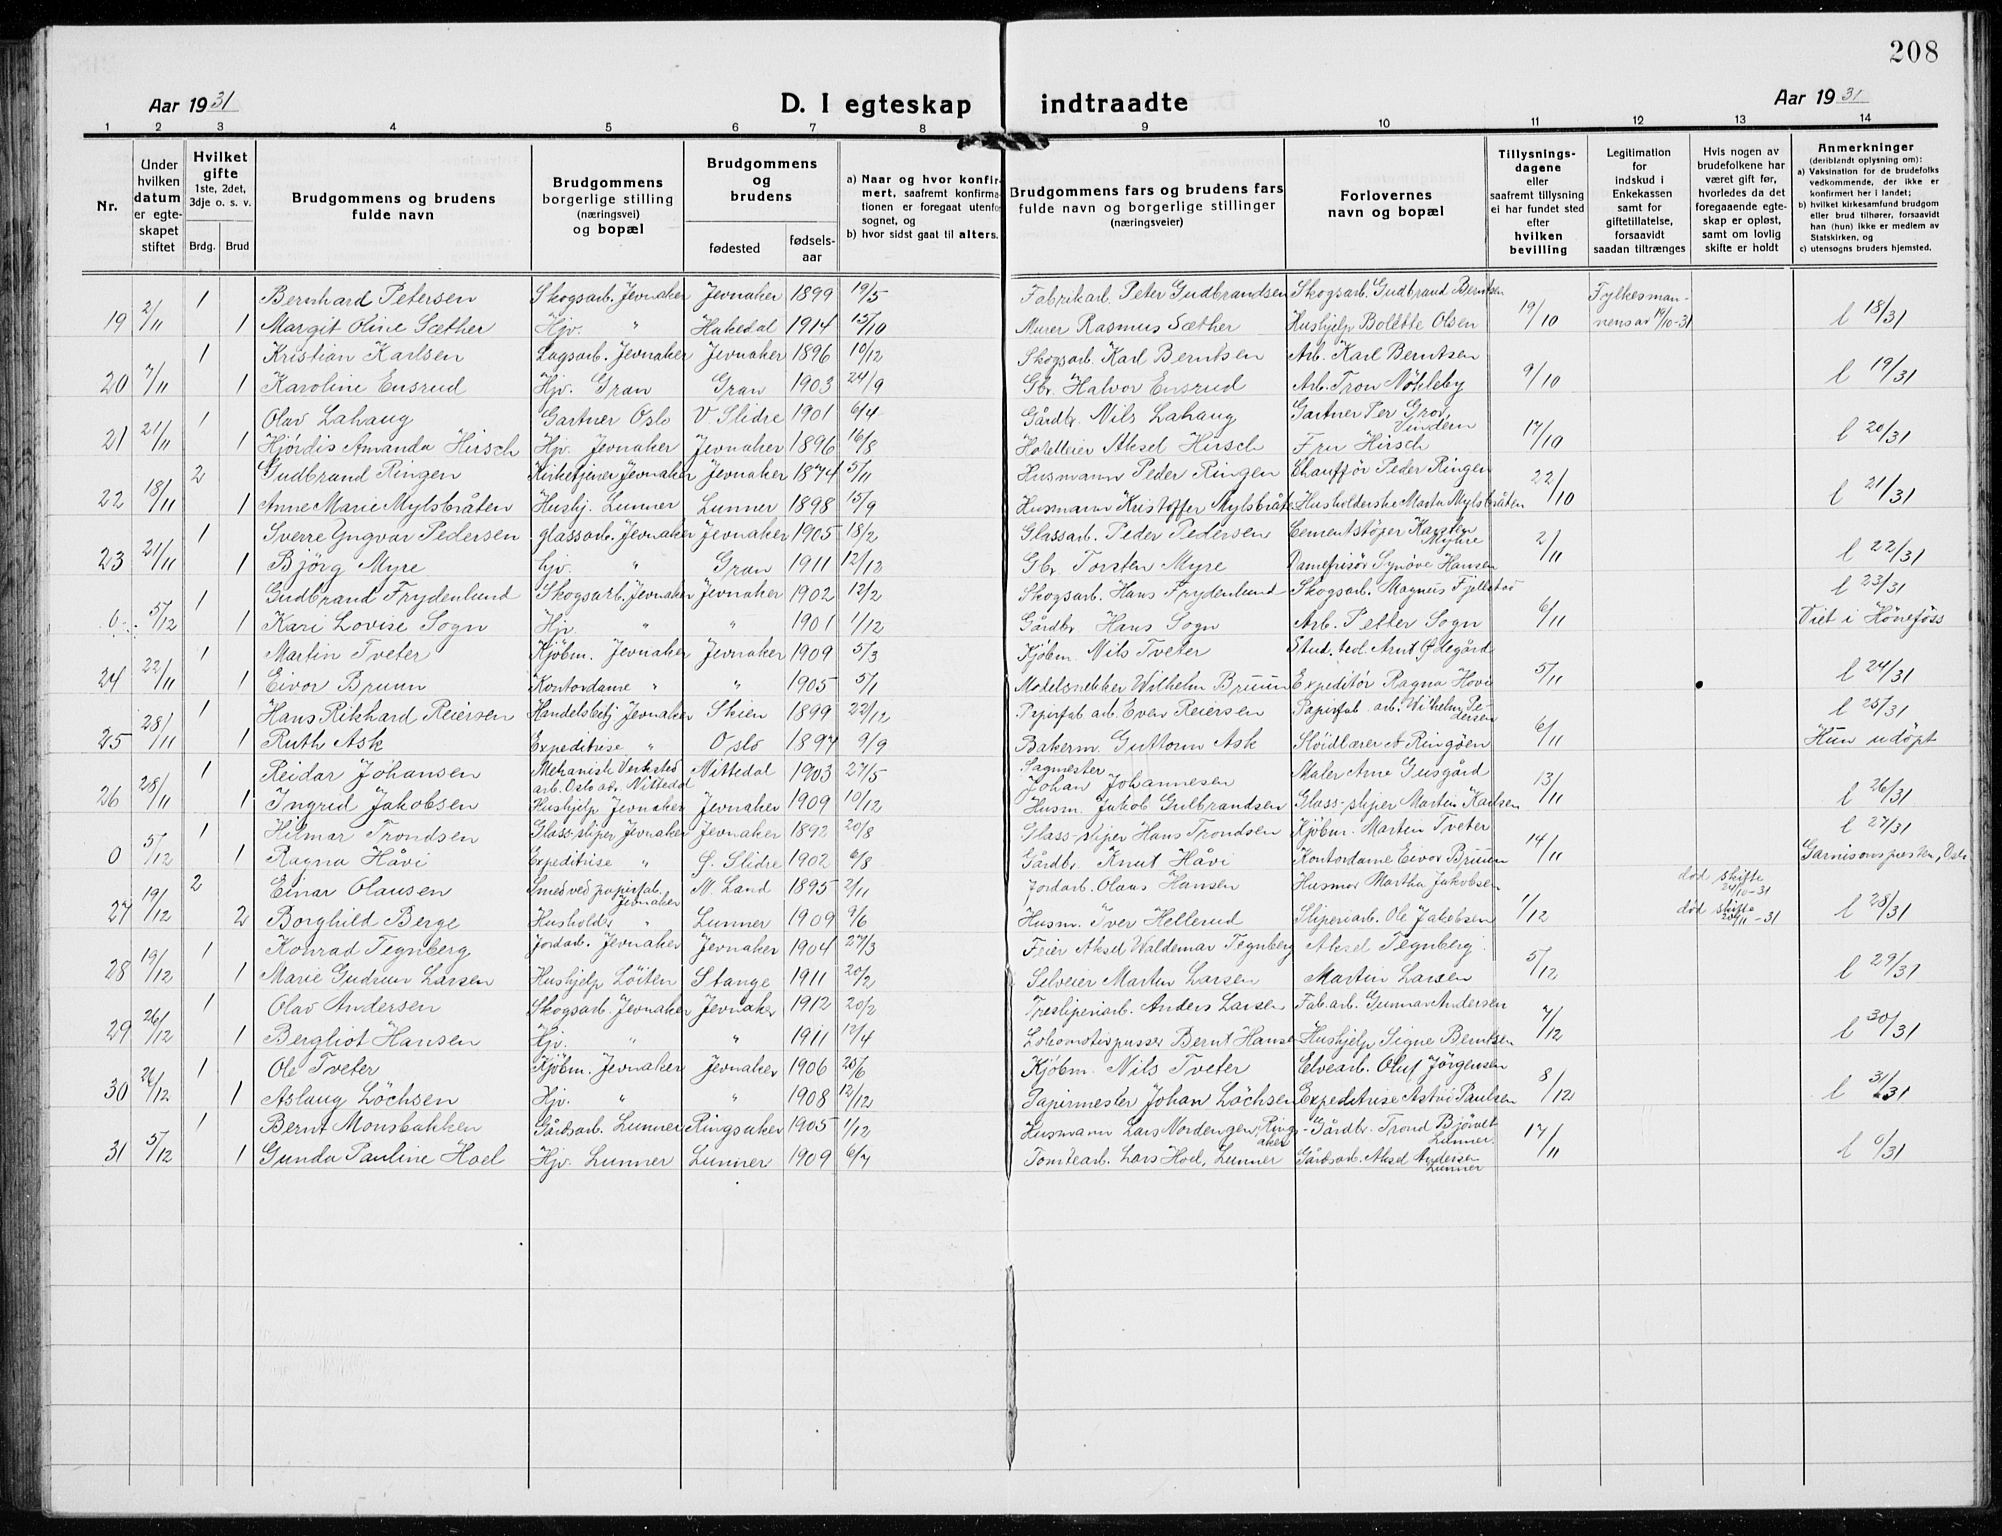 208
Aar 1931
D. I egteskap indtraadte
Aar 1931
1 2 3 4 5 6 7 8 9 10 11 12 13 14
Nr.
Under hvilken datum er egteskapet stiftet
Hvilket gifte 1ste, 2det, 3dje o. s. v.
Brdg. Brud
Brudgommens og brudens fulde navn
Brudgommens borgerlige stilling (næringsvei) og bopæl
Brudgommens og brudens
fødested fødselsaar
a) Naar og hvor konfirmert, saafremt konfirmationen er foregaat utenfor sognet, og
b) hvor sidst gaat til alters.
Brudgommens fars og brudens fars fulde navn og borgerlige stillinger (næringsveier)
Forlovernes navn og bopæl
Tillysningsdagene eller saafremt tillysning ei har fundet sted efter hvilken bevilling
Legitimation for indskud i Enkekassen samt for giftetillatelse, forsaavidt saadan tiltrænges
Hvis nogen av brudefolkene har været gift før, hvorledes da det foregaaende egteskap er opløst, samt om lovlig skifte er holdt
Anmerkninger (deriblandt oplysning om):
a) Vaksination for de brudefolks vedkommende, der ikke er konfirmert her i landet;
b) hvilket kirkesamfund brudgom eller brud tilhører, forsaavidt han (hun) ikke er medlem av Statskirken, og
c) utensogns bruders hjemsted.
1 Bernhard Petersen Skogsarb. Jevnaker Jevnaker 1899 19/5 Fabrikarb. Peter Gudbrandsen Skogsarb. Gudbrand Berntsen Fylkesman-
19 2/11 1 Margit Oline Sæther Hjv. " Hakedal 1914 15/10 Murer Rasmus Sæther Hushjelp Bolette Olsen 19/10 nens av 19/10-31 l 18/31
1 Kristian Karlsen Lagsarb. Jevnaker Jevnaker 1896 10/12 Skogsarb. Karl Berntsen Arb. Karl Berntsen
20 7/11 1 Karoline Ensrud Hjv. Gran Gran 1903 24/9 Gbr. Halvor Ensrud Arb. Tron Nökleby 9/10 l 19/31
1 Olav Lahaug Gartner Oslo V. Slidre 1901 6/4 Gårdbr. Nils Lahaug Gartner Per Grov, Vindern
21 21/11 1 Hjördis Amanda Hirsch Hjv. Jevnaker Jevnaker 1896 16/8 Hotelleier Aksel Hirsch Fru Hirsch 17/10 l 20/31
2 Gudbrand Ringen Kirketjener Jevnaker Jevnaker 1874 5/11 Husmann Peder Ringen Chauffør Peder Ringen
22 18/11 1 Anne Marie Mylsbråten Hushj. Lunner Lunner 1898 15/9 Husmann Kristoffer Mylsbråten Husholderske Marta Mylsbråten 22/10 l 21/31
1 Sverre Yngvar Pedersen glassarb. Jevnaker Jevnaker 1905 18/2 Glassarb. Peder Pedersen Cementstöper Karsten Myhre
23 21/11 1 Bjørg Myre hjv. " Gran 1911 12/12 Gbr. Torsten Myre Damefrisör Synöve Hansen 2/11 l 22/31
1 Gudbrand Frydenlund Skogsarb. Jevnaker Jevnaker 1902 12/2 Skogsarb. Hans Frydenlund Skogsarb. Magnus l 23/31
0 5/12 1 Kari Lovise Sogn Hjv. " " 1901 1/12 Gårdbr. Hans Sogn Arb. Petter Sogn 6/11 Viet i Hönefoss
1 Martin Tveter Kjöbm. Jevnaker Jevnaker 1909 5/3 Kjöbm. Nils Tveter Stud. teol. Arnt Ødegård
24 22/11 1 Eivor Bruun Kontordame " " 1905 5/1 Modelsnekker Wilhelm Bruun Expeditör Ragna Hovi 5/11 l 24/31
1 Hans Rikhard Reiersen Handelsbetj. Jevnaker Skien 1899 22/12 Papirfab. arb. Even Reiersen Papirfab. arb. Wilhelm Pedersen l 25/31
25 28/11 1 Ruth Ask Expeditrise " Oslo 1897 9/9 Bakerm. Guttorm Ask Slöidlærer A Ringöen 6/11 Hun udöpt
1 Reidar Johansen Mekanisk Verksted arb. Oslo av Nittedal Nittedal 1903 27/5 Sagmester Johan Johannesen Maler Arne Gusgård
26 28/11 1 Ingrid Jakobsen Hushjelp Jevnaker Jevnaker 1909 10/12 Husm. Jakob Gulbrandsen Glass-sliper Martin Karlsen 13/11 l 26/31
1 Hilmar Trondsen Glass-sliper Jevnaker Jevnaker 1892 20/8 Glass-sliper Hans Trondsen Kjöbm. Martin Tveter l 27/31
0 5/12 1 Ragna Håvi Expeditrise " Ö. Slidre 1902 6/8 Gårdbr. Knut Håvi Kontordame Eivor Bruun 14/11 Garnisonspresten, Oslo
2 Einar Olausen Smed ved papirfab. Jevnaker N. Land 1895 2/11 Jordarb. Olaus Hansen Husmor Martha Jakobsen död skifte 24/10-31
27 19/12 2 Borghild Berge Husholder " Lunner 1909 9/6 Husm. Iver Hellerud Sliperiarb. Ole Jakobsen 1/12 död skifte 20/11-31 l 28/31
1 Konrad Tegnberg Jordarb. Jevnaker Jevnaker 1904 27/3 Feier Aksel Waldemar Tegnberg Aksel Tegnberg
28 19/12 1 Marie Gudrun Larsen Hushjelp Löiten Stange 1911 20/2 Selveier Martin Larsen Martin Larsen 5/12 l 29/31
1 Olav Andersen Skogsarb. Jevnaker Jevnaker 1912 20/2 Tresliperiarb. Anders Larsen Fab. arb. Gunnar Andersen
29 26/12 1 Bergliot Hansen Hjv. " " 1911 17/4 Lokomotivpusser Bernt Hansen Hushjelp Signe Berntsen 7/12 l 30/31
1 Ole Tveter Kjöbm. Jevnaker Jevnaker 1906 25/6 Kjöbm. Nils Tveter Elvearb. Oluf Jörgensen
30 26/12 1 Aslaug Löchsen Hjv. " " 1908 12/12 Papirmester Johan Löchsen Expeditrise Astri Paulsen 8/12 l 31/31
1 Bernt Monsbakken Gårdsarb. Lunner Ringsaker 1905 1/12 Husmann Lars Nordengen, Ringsaker Gårdbr. Trond Bjövelt Lunner
31 5/12 1 Gunda Pauline Hoel Hjv. Lunner Lunner 1909 6/7 Tomtearb. Lars Hoel, Lunner Gårdsarb. Aksel Andersen Lunner 17/11 l 0/31